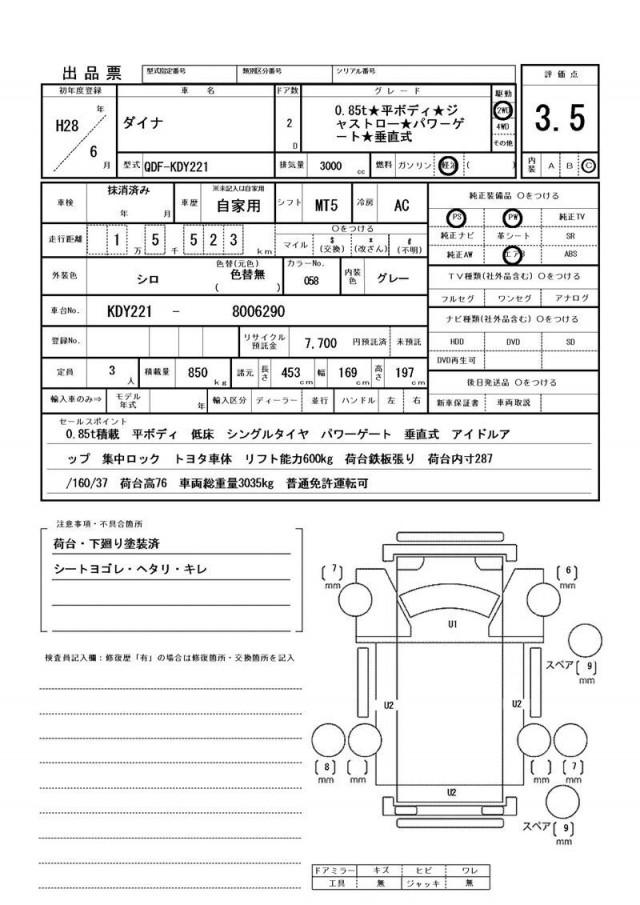 出品票 型式指定番号 類別区分番号 シリアル番号 評価点
初年度登録 車名 ドア数 グレード 駆動
H28 年 6 月 ダイナ 2 D 0.85t★平ボディ★ジャストロー★パワーゲート★垂直式 2WD 4WD その他 3.5
型式 QDF-KDY221 排気量 3000 cc 燃料 ガソリン 軽油 ( ) 内装 A B C
車検 抹消済み 年 月 車歴 ※未記入は自家用 自家用 シフト MT5 冷房 AC 純正装備品 〇をつける
PS PW 純正TV
走行距離 1 万 5 千 5 2 3 km 〇をつける マイル $ (交換) * (改ざん) # (不明) 純正ナビ 革シート SR
純正AW エアB ABS
外装色 シロ 色替(元色) 色替無 ( ) カラーNo. 058 内装色 グレー TV種類(社外品含む) 〇をつける
フルセグ ワンセグ アナログ
車台No. KDY221 - 8006290 ナビ種類(社外品含む) 〇をつける
登録No. リサイクル預託金 7,700 円預託済 未預託 HDD DVD SD
DVD再生可
定員 3 人 積載量 850 kg 諸元 長さ 453 cm 幅 169 cm 高さ 197 cm 後日発送品 〇をつける
輸入車のみ⇒ モデル年式 年 輸入区分 ディーラー 並行 ハンドル 左 右 新車保証書 車両取説
セールスポイント
0.85t積載 平ボディ 低床 シングルタイヤ パワーゲート 垂直式 アイドルア
ップ 集中ロック トヨタ車体 リフト能力600kg 荷台鉄板張り 荷台内寸287
/160/37 荷台高76 車両総重量3035kg 普通免許運転可
注意事項・不具合箇所
荷台・下廻り塗装済
シートヨゴレ・ヘタリ・キレ
検査員記入欄:修復歴「有」の場合は修復箇所・交換箇所を記入
( 7 ) mm ( 6 ) mm
U1
スペア ( 9 ) mm
U2 U2
( 8 ) mm ( ) mm ( ) mm ( 7 ) mm
U2
スペア ( 9 ) mm
ドアミラー キズ ヒビ ワレ
工具 無 ジャッキ 無